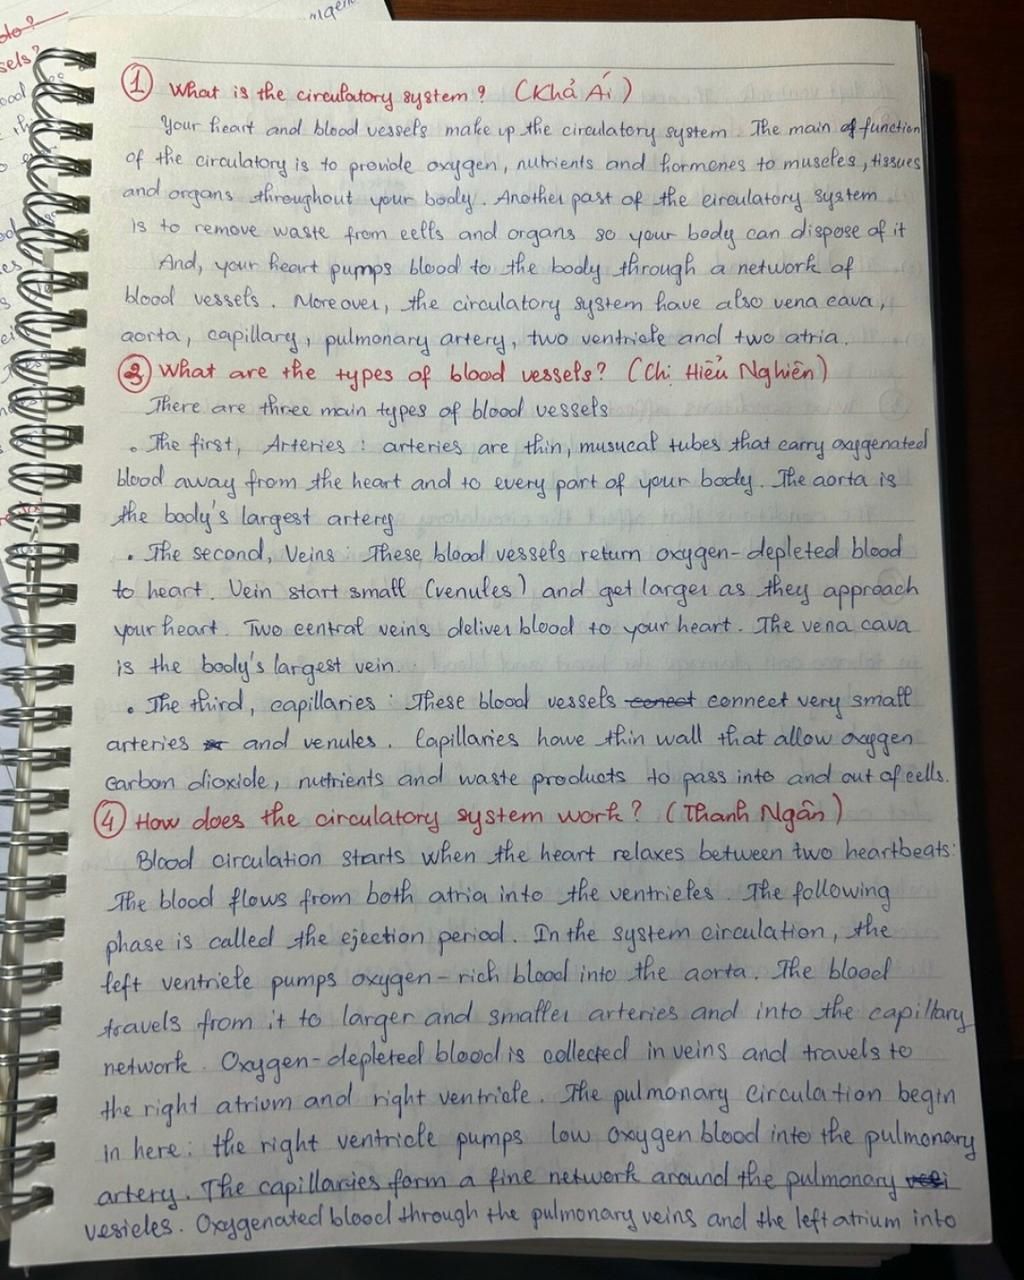 do?
ngein
sels?
ood
① What is the circulatory system? (Khả Ái)
Your heart and blood vessels make up the circulatory system. The main of function
of the circulatory is to provide oxygen, nutrients and hormones to muscles, tissues
and organs throughout your body. Another part of the circulatory system
is to remove waste from cells and organs so your body can dispose of it
And, your heart pumps blood to the body through a network of
blood vessels. Moreover, the circulatory system have also vena cava,
aorta, capillary, pulmonary artery, two ventricle and two atria.
③ What are the types of blood vessels? (Chị Hiểu Nghiên)
There are three main types of blood vessels
• The first, Arteries : arteries are thin, musucal tubes that carry oxygenated
blood away from the heart and to every part of your body. The aorta is
the body's largest artery
• The second, Veins : These blood vessels return oxygen-depleted blood
to heart. Vein start small (venules) and get larger as they approach
your heart. Two central veins deliver blood to your heart. The vena cava
is the body's largest vein.
• The third, capillaries : These blood vessels conect connect very small
arteries and venules. Capillaries have thin wall that allow oxygen
carbon dioxide, nutrients and waste products to pass into and out of cells.
④ How does the circulatory system work? (Thanh Ngân)
Blood circulation starts when the heart relaxes between two heartbeats:
The blood flows from both atria into the ventricles. The following
phase is called the ejection period. In the system circulation, the
left ventricle pumps oxygen-rich blood into the aorta. The blood
travels from it to larger and smaller arteries and into the capillary
network. Oxygen-depleted blood is collected in veins and travels to
the right atrium and right ventricle. The pulmonary circulation begin
in here: the right ventricle pumps low oxygen blood into the pulmonary
artery. The capillaries form a fine network around the pulmonary
vesicles. Oxygenated blood through the pulmonary veins and the left atrium into